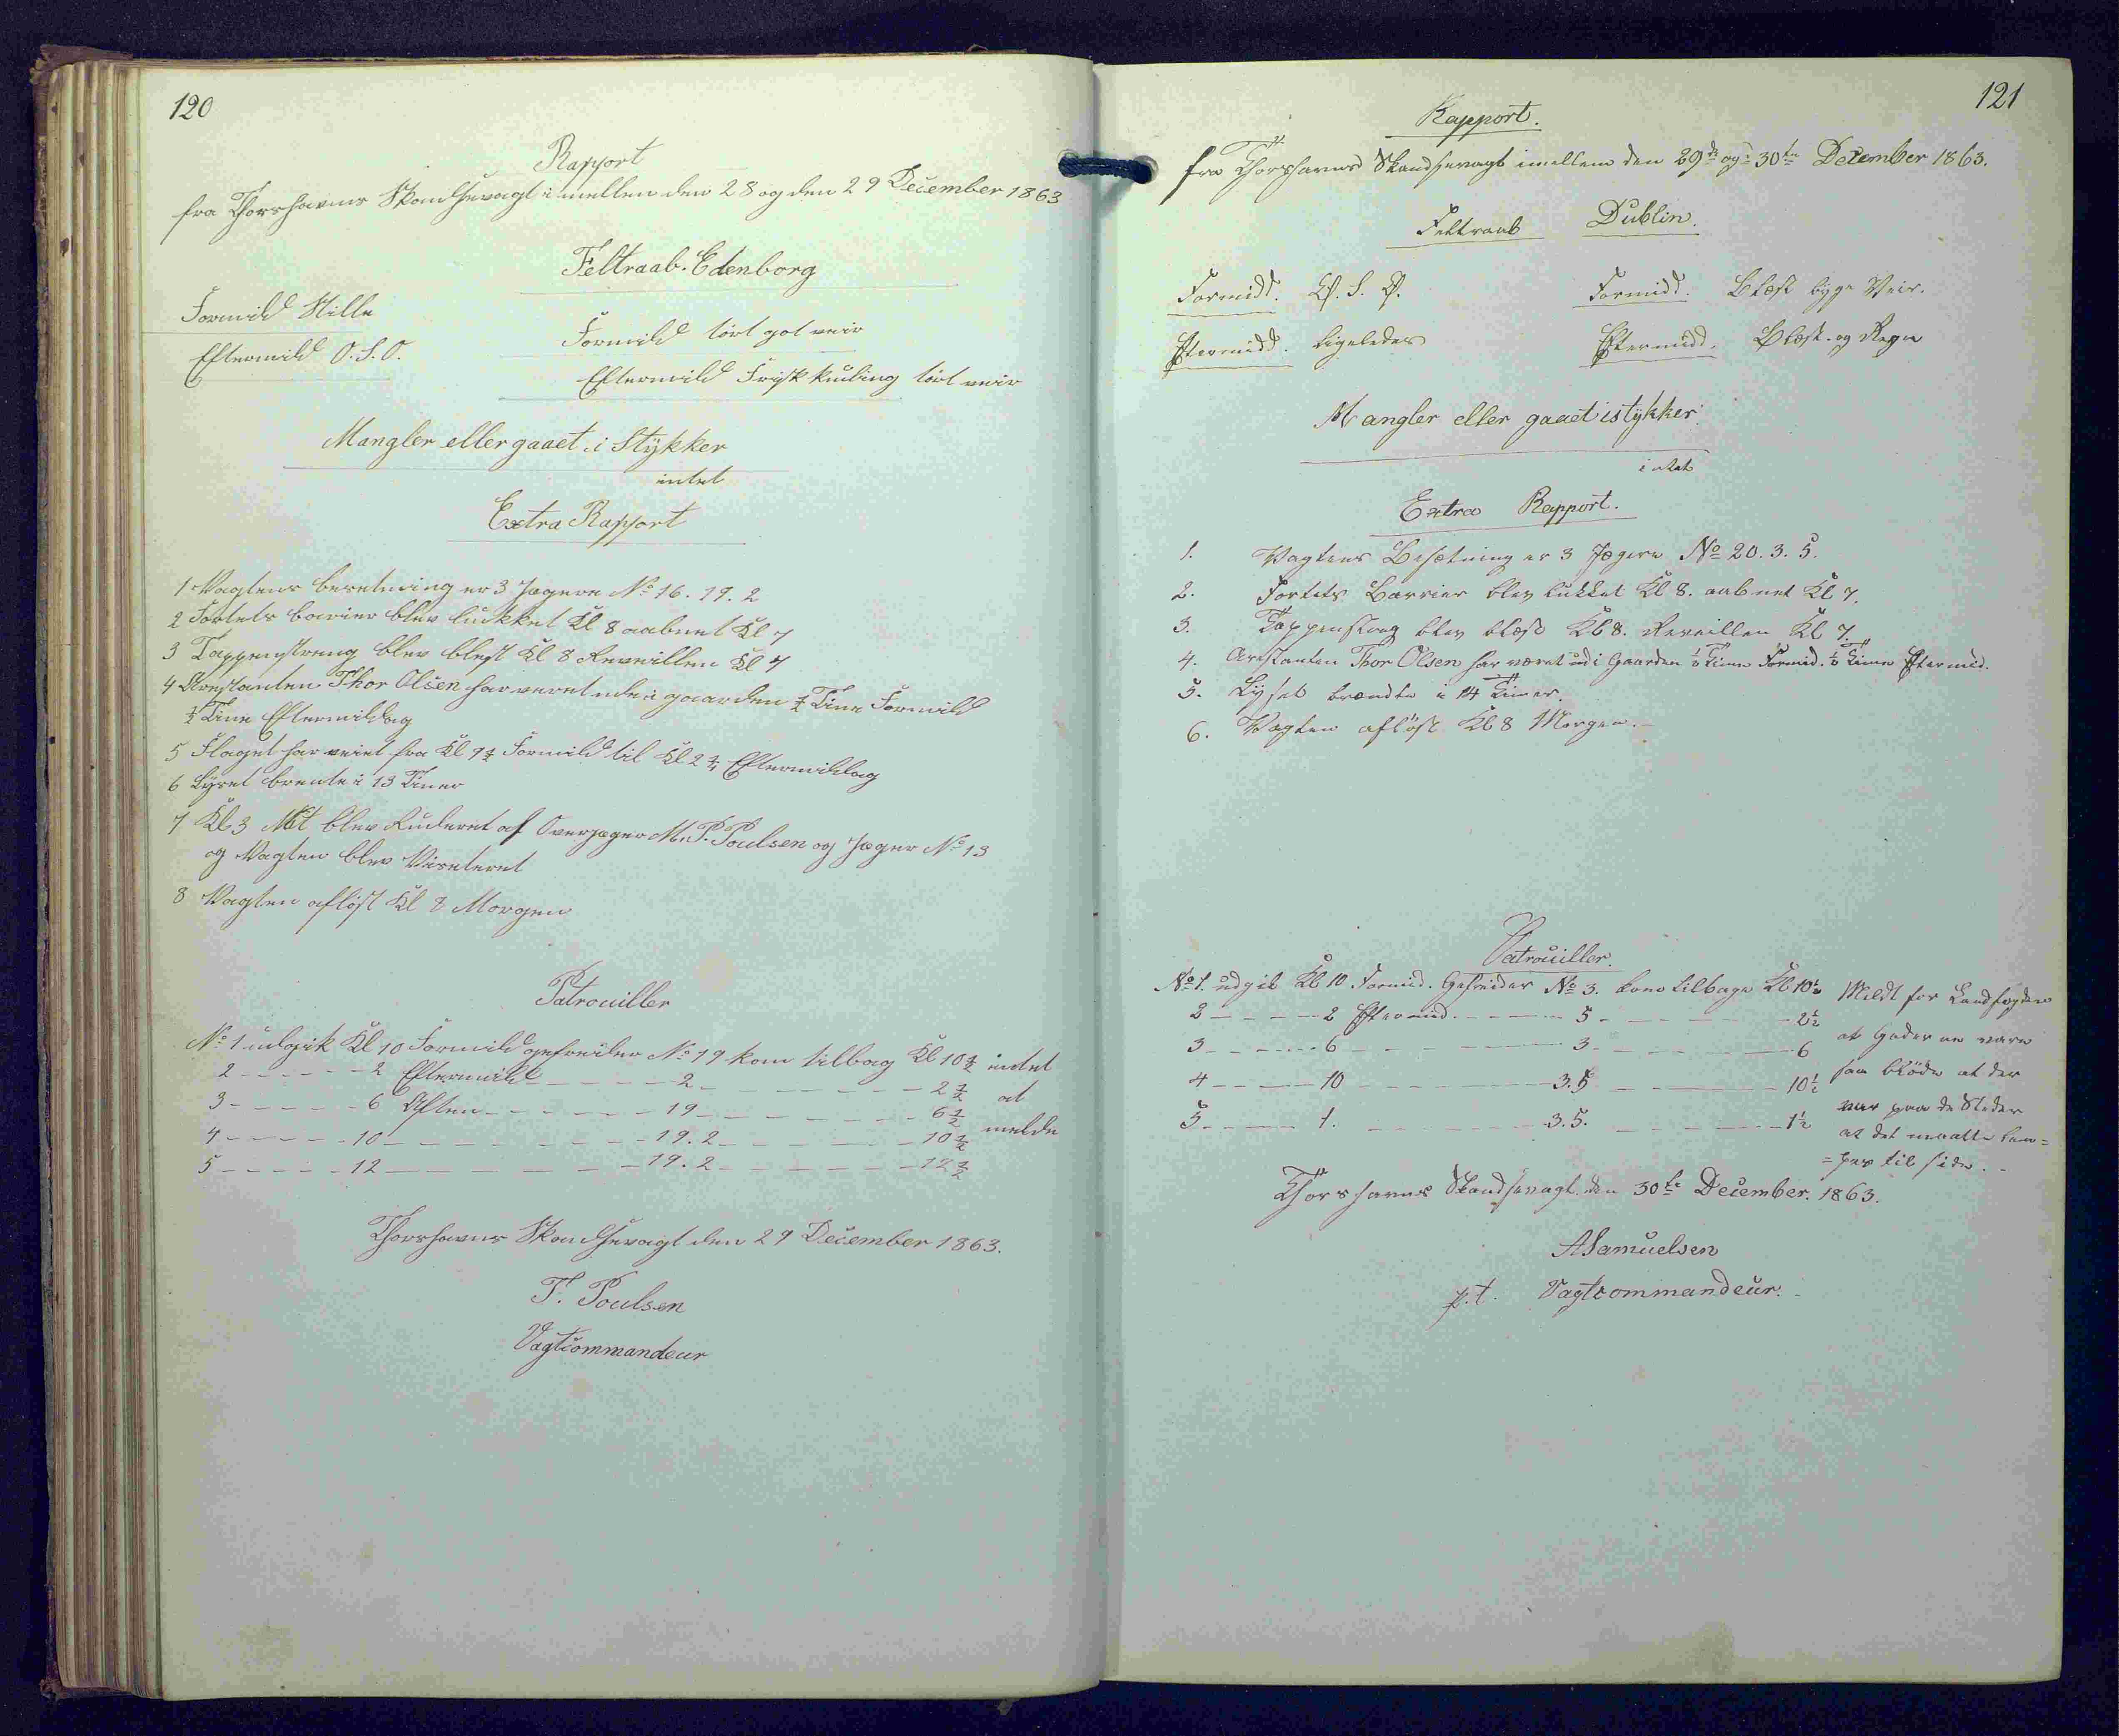 120
Rapport
fra Thorshavns Skandsevagt imellen den 28 og den 29 December 1863
Feltraab. Edenborg
Formidd Stille
Formidd tört got veir
Eftermidd O.S.O.
Eftermidd Frisk kuling tört veir
Mangler eller gaaet i Stÿkker
intet
Extra Rapport
1 Vagtens besetning er 3 Jægere No 16. 19. 2
2 Fortets barier blev lückket Kl 8 aabnet Kl 7
3 Tappenstreng blev blest Kl 8 Reveillen Kl 7
4 Arestanten Thor Olsen har veret ude i gaarden ½ Time Formidd
½ Time Eftermiddag
5 Flaget har veiet fra Kl 9½ Formidd til Kl 2¾ Eftermiddag
6 Lÿset brente i 13 Timer
7 Kl 3 Nat blev Ruderet af Overjæger M. P. Poulsen og Jæger No 13
og Vagten blev Visenteret
8 Vagten aflöst Kl 8 Morgen
Patrouiller
No 1 udgik Kl 10 Formidd gefreider No 19 kom tilbag Kl 10½ intet
2 - - - - - 2 Eftermidd - - - - - 2 - - - - - - 2½ at
3 - - - - - 6 Aften - - - - - - 19 - - - - - - 6½ melde
4 - - - - - 10 - - - - - - - - 19. 2 - - - - - - 10½
5 - - - - - 12 - - - - - - - - 19. 2 - - - - - - 12½
Thorshavns Skandsevagt den 29 December 1863.
T. Poulsen
Vagtcommandeur
121
Rapport.
fra Thorshavns Skandsevagt imellem den 29de og 30te December 1863.
Feltraab Dublin.
Formidd. V. S. V. Formidd. Blæst byge Veir.
Eftermidd. ligeledes Eftermidd. Blæst. og Regn
Mangler eller gaaet istÿkker.
intet
Extra Rapport.
1. Vagtens Besætning er 3 Jægere No 20. 3. 5.
2. Fortets Barrier blev lukket Kl 8. aabnet Kl 7.
3. Tappenstreg blev blæst Kl 8. Reveillen Kl 7.
4. Arestanten Thor Olsen har været ud i Gaarden ½ Time Formid. ½ Time Eftermid.
5. Lÿset brændte i 14 Timer.
6. Vagten aflöst Kl 8 Morgen.
Patrouiller.
No 1. udgik Kl 10 Formid. Gefreider No 3. kom tilbage Kl 10½ Meldt for Landfogden
2 - - - - - 2 Eftermid. - - - - - 5 - - - - - - 2½ at Gaderne vare
3 - - - - - 6 - - - - - - - - 3 - - - - - - 6 saa blöde at der
4 - - - - - 10 - - - - - - - - 3. 5 - - - - - - 10½ var paa de Steder
5 - - - - - 1. - - - - - - - - 3. 5. - - - - - - 1½ at det maatte lem=
=pes til side.
Thorshavns Skandsevagt. den 30te December. 1863.
ASamuelsen
p.t. Vagtcommandeur.